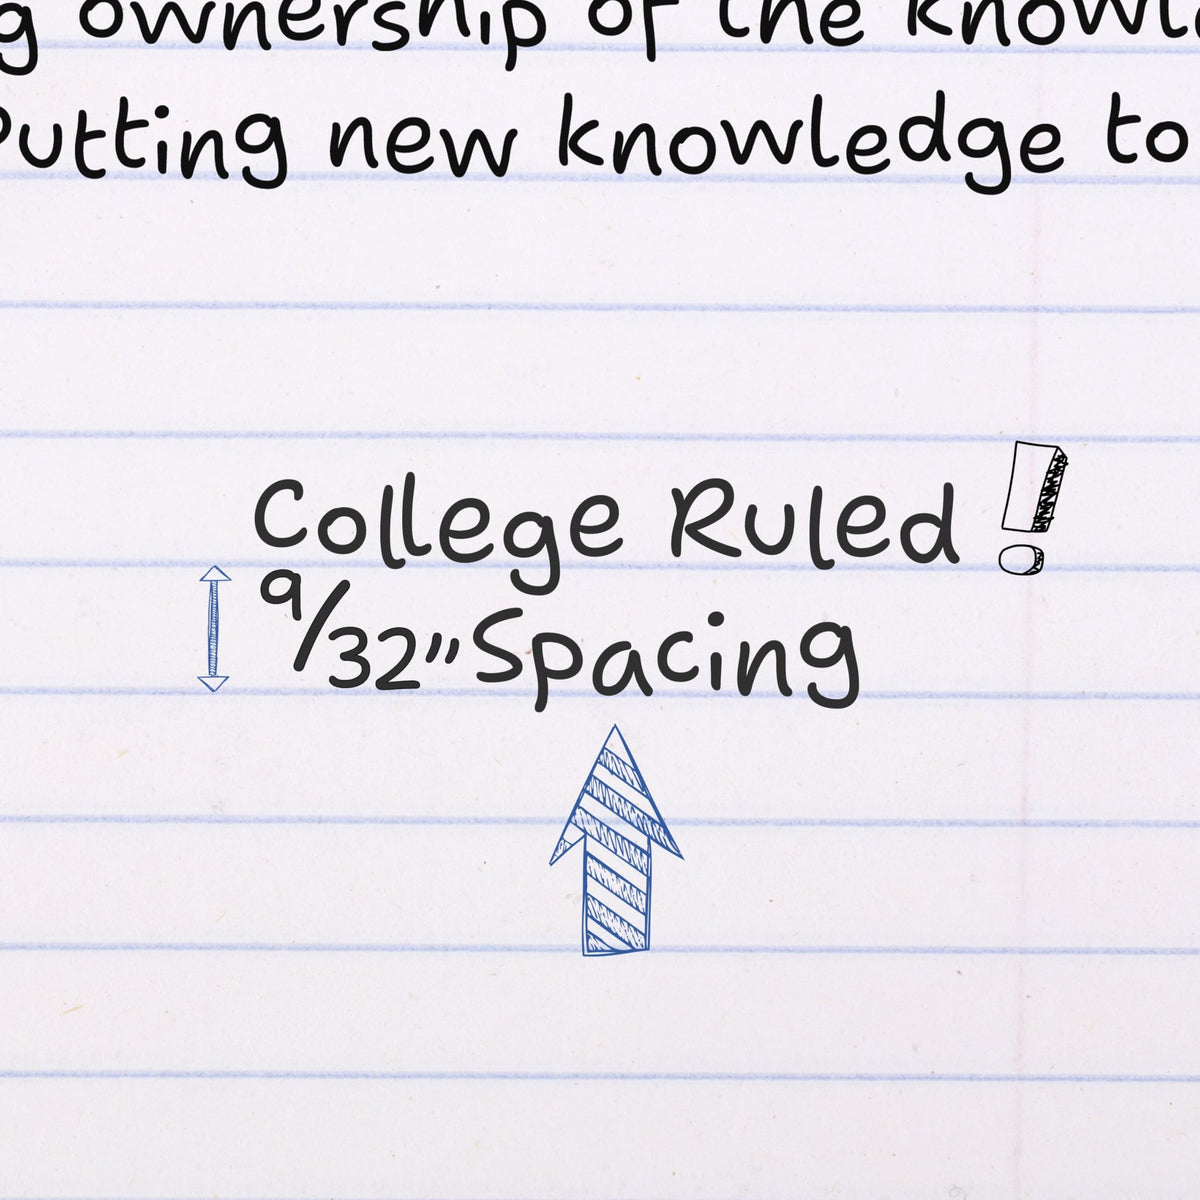 g ownership of the knowl
Putting new knowledge to
College Ruled!
9/32" Spacing